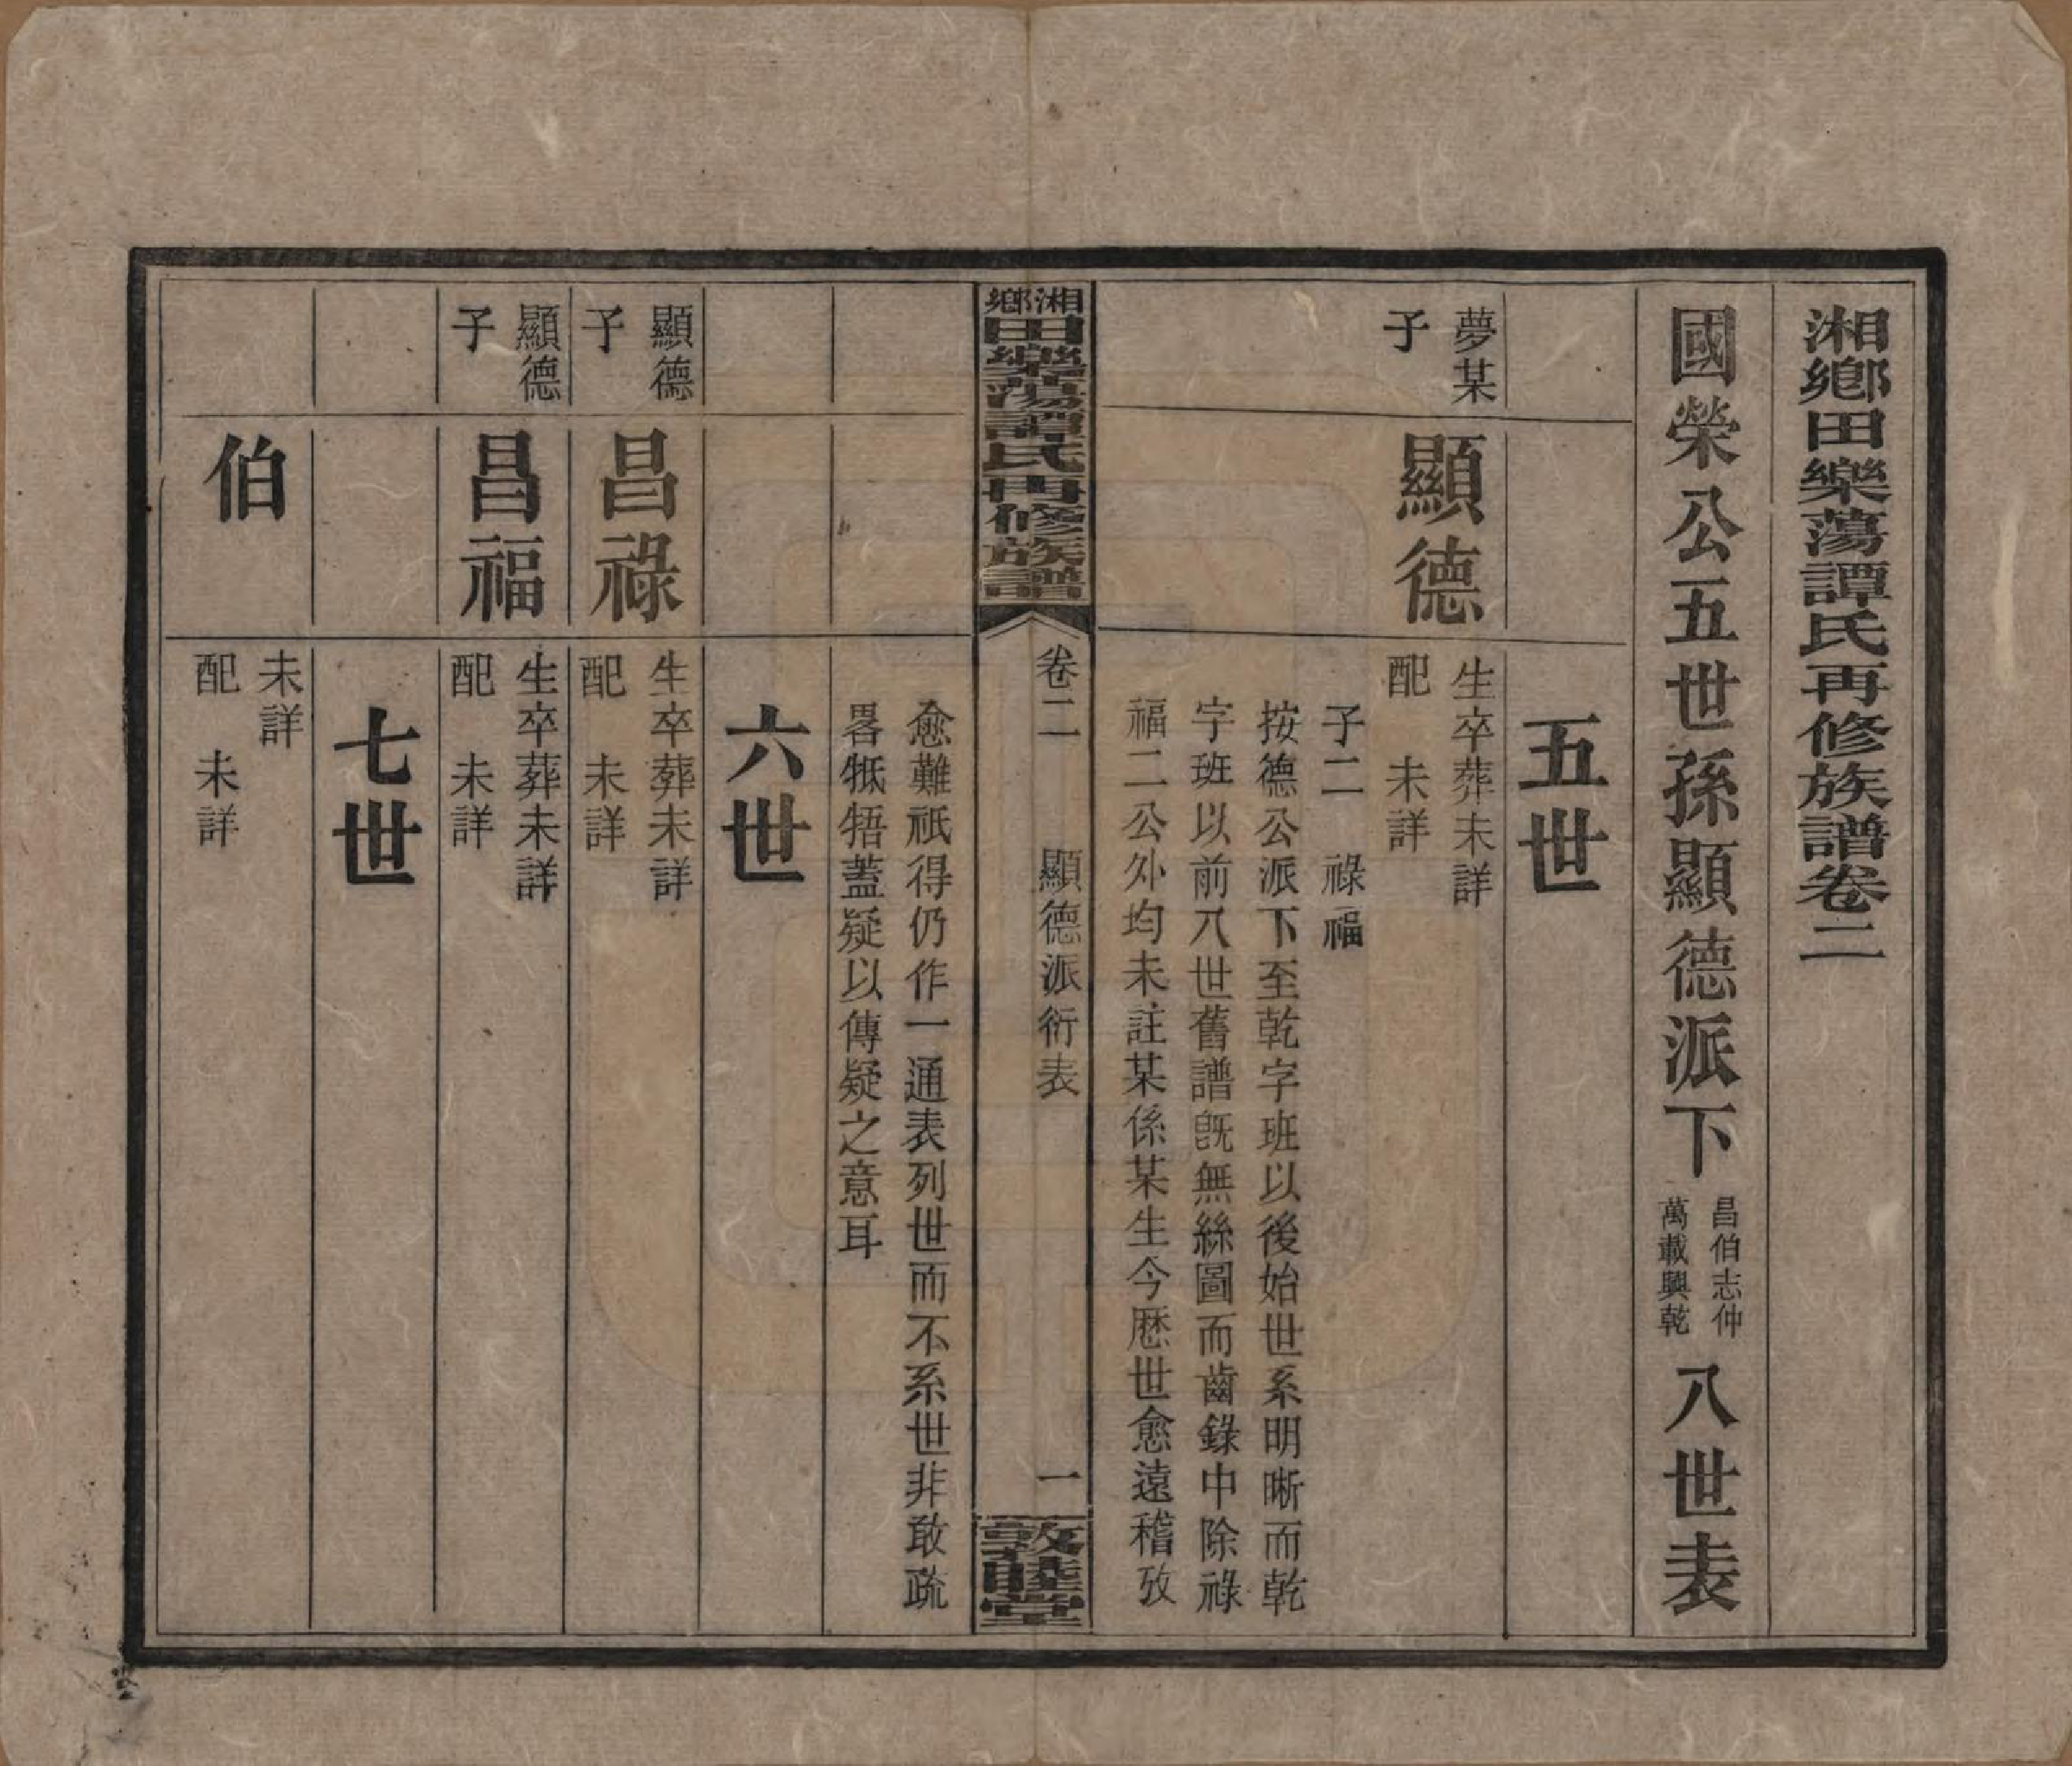 湘鄉田樂蕩譚氏再修族譜卷二
國榮公五世孫顯德派下
昌伯志仲
萬載興乾
八世表
五世
夢某
子
顯德
生卒葬未詳
配　未詳
子二　祿　福
按德公派下至乾字班以後始世系明晰而乾
字班以前八世舊譜旣無絲圖而齒錄中除祿
福二公外均未註某係某生今厯世愈遠稽攷
湘鄉田樂蕩譚氏再修族譜
卷二　顯德派衍表　一
敦睦堂
愈難祇得仍作一通表列世而不系世非敢疏
畧牴牾蓋疑以傳疑之意耳
六世
顯德
子
昌祿
生卒葬未詳
配　未詳
顯德
子
昌福
生卒葬未詳
配　未詳
七世
伯
未詳
配　未詳